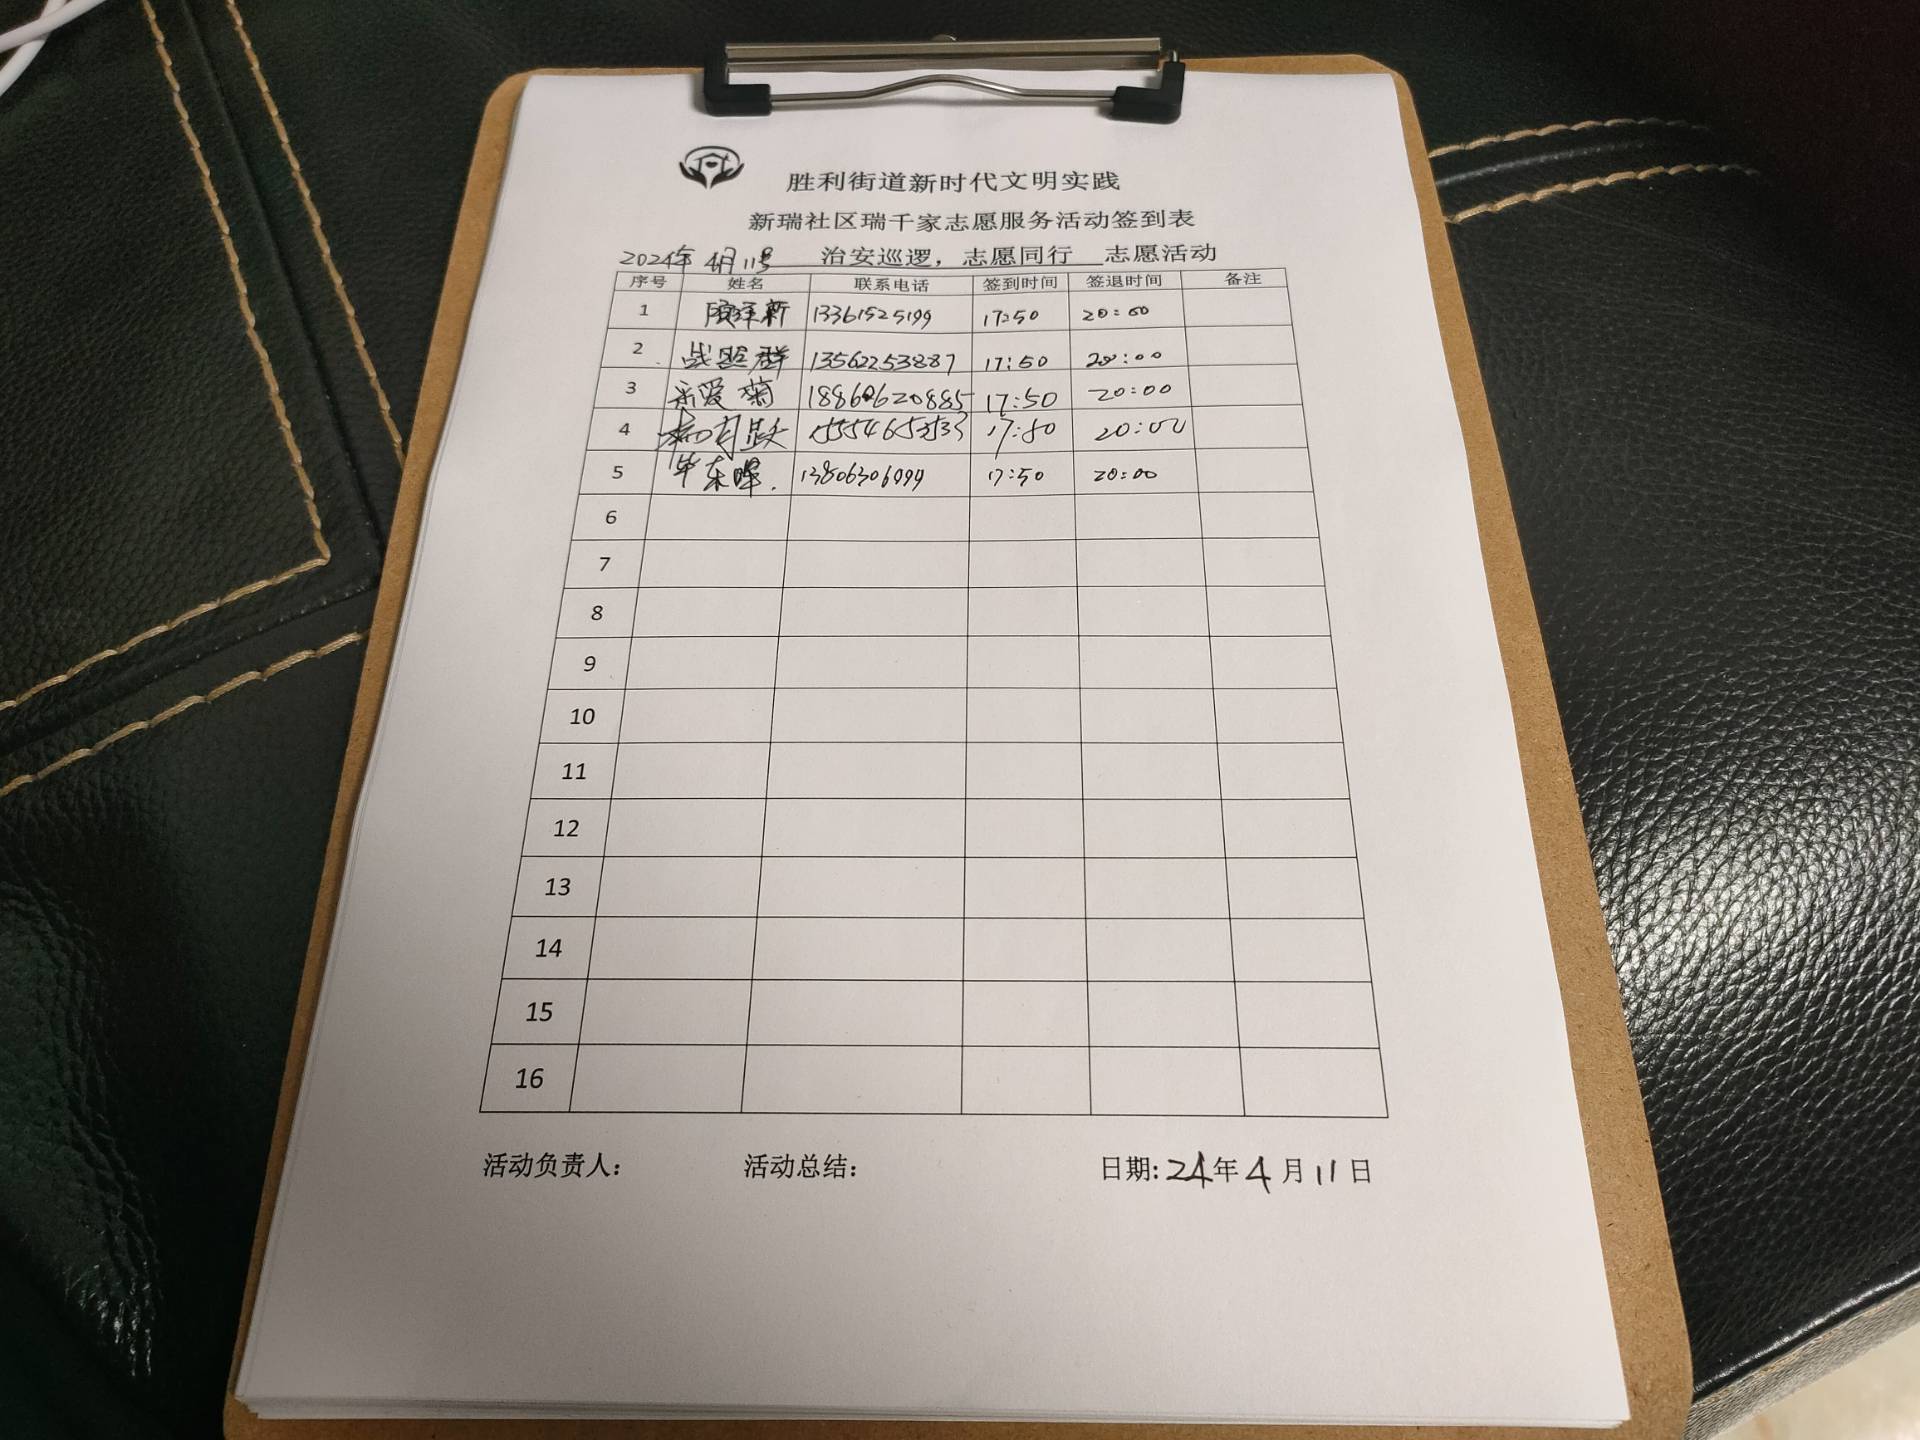 胜利街道新时代文明实践
新瑞社区瑞千家志愿服务活动签到表
2024年 4月11号 治安巡逻，志愿同行 志愿活动
序号 姓名 联系电话 签到时间 签退时间 备注
1 13361525199 17:50 20:00
2 战照群 13562253887 17:50 20:00
3 爱菊 18860620885 17:50 20:00
4 15554653533 17:50 20:00
5 毕东晖. 13806306099 17:50 20:00
6
7
8
9
10
11
12
13
14
15
16
活动负责人： 活动总结： 日期:24年4月11日